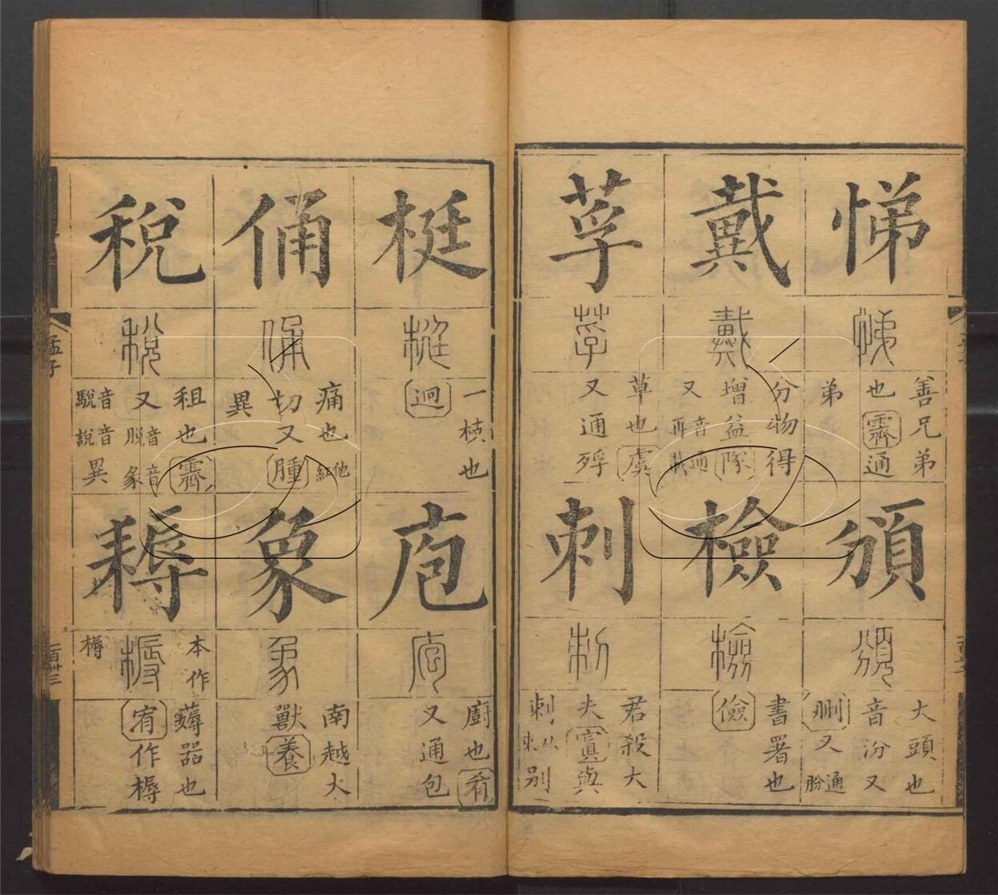 悌
悌
善兄弟
也霽通
弟
頒
頒
大頭也
音汾又
删又通朌
戴
戴
分物得
增益隊
又音再通載
檢
檢
書署也
儉
莩
莩
草也虞
又通殍
刺
刺
君殺大
夫寘與
刺別
梃
梃
一枝也
迥
庖
庖
廚也肴
又通包
俑
俑
痛也他紅
切又腫
異
象
象
南越大
獸養
稅
稅
租也霽
又音脫音彖
音駾音說異
耨
耨
本作
槈
薅器也
宥作槈
孟子
百卅三